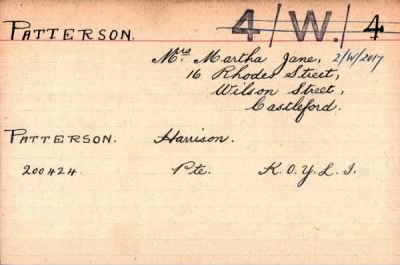 PATTERSON. 4/W./4
Mrs Martha Jane, 2/W/2017
16 Rhodes Street,
Wilson Street,
Castleford.
PATTERSON. Harrison.
200424. Pte. K.O.Y.L.I.